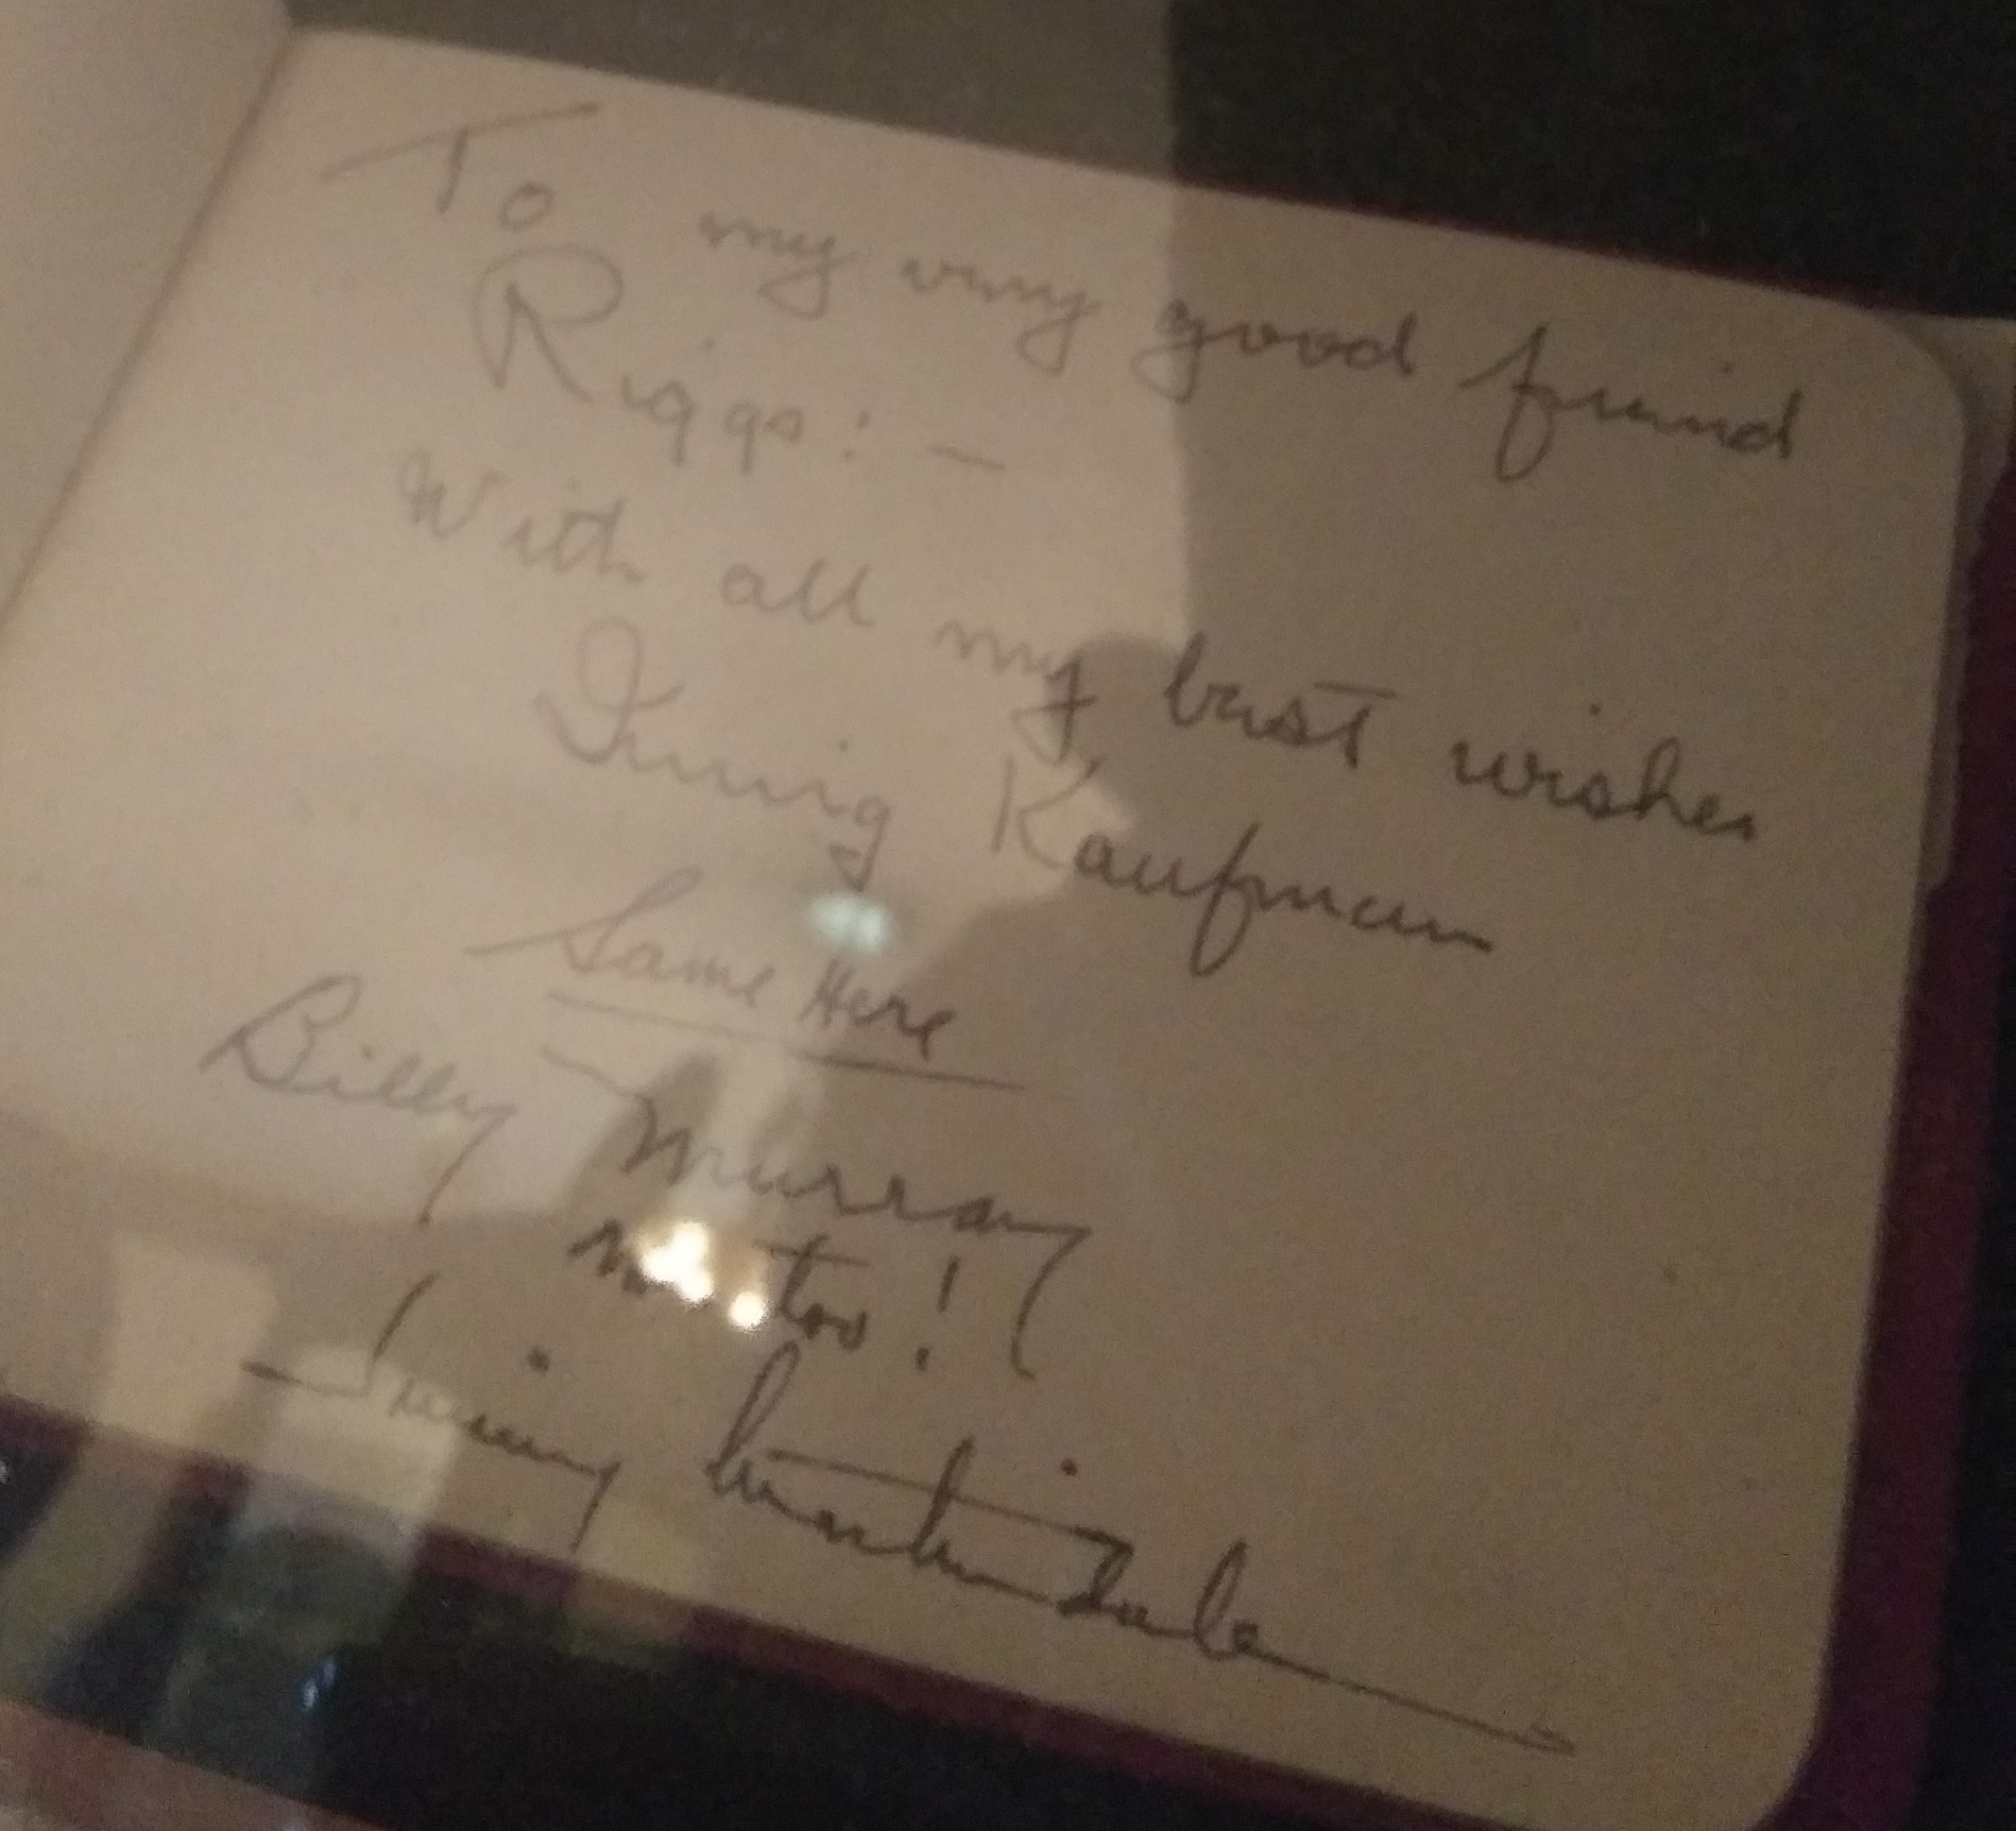 To my very good friend
Riggs: —
With all my best wishes
Irving Kaufman
Same Here
Billy Murray
me too!
Jimmy